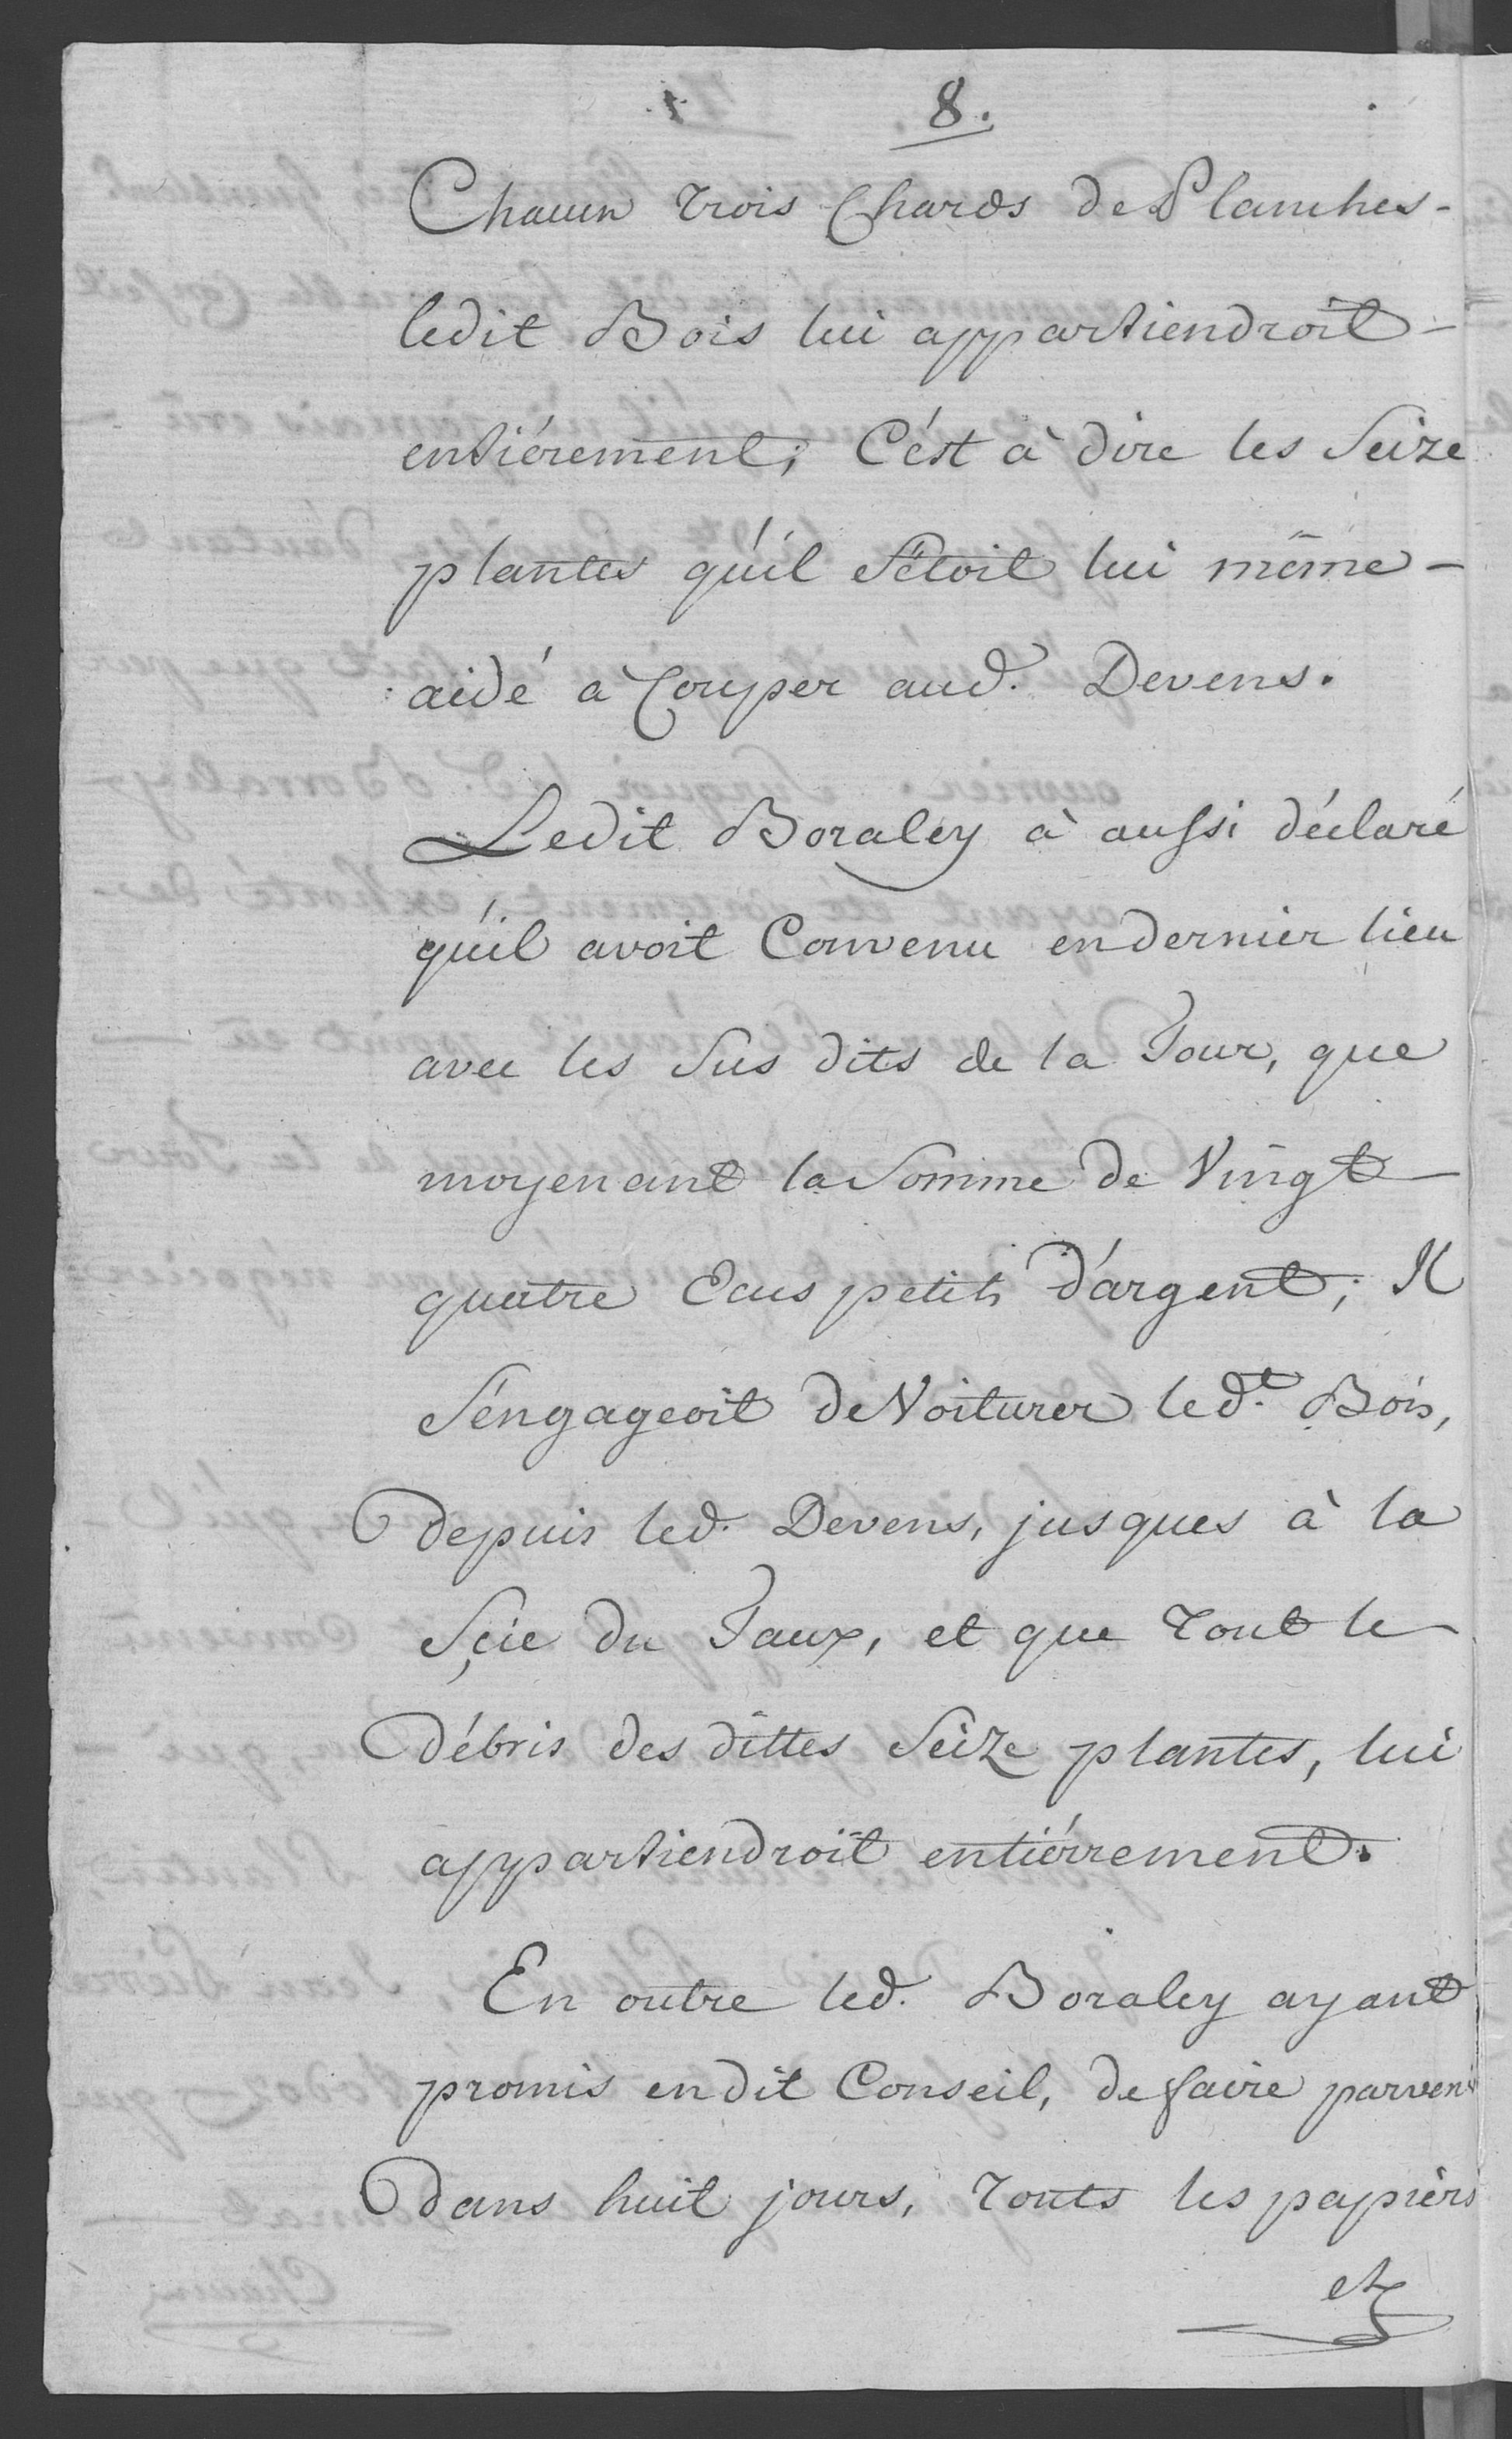 8.
Chacun trois Chards de Planches-
ledit Bois lui appartiendroit-
entiérement; C'ést à dire les Seize
plantes qu'il S'étoit lui même-
aidé à Couper aud. Devens.
Ledit Boraley à aussi déclaré
qu'il avoit Convenu en dernier lieu
avec les Sus dits de la Tour, que
moyenant la Somme de Vingt-
quatre Ecus petits d'argent; Il
S'éngageoit de Voiturer led.t Bois,
depuis led. Devens, jusques à la
Sçie du Faux, et que tout le-
débris des dittes Seize plantes, lui
appartiendroit entiérrement.
En outre led. Boraley ayant
promis en dit Conseil, de faire parveni
dans huit jours, touts les papiérs
et